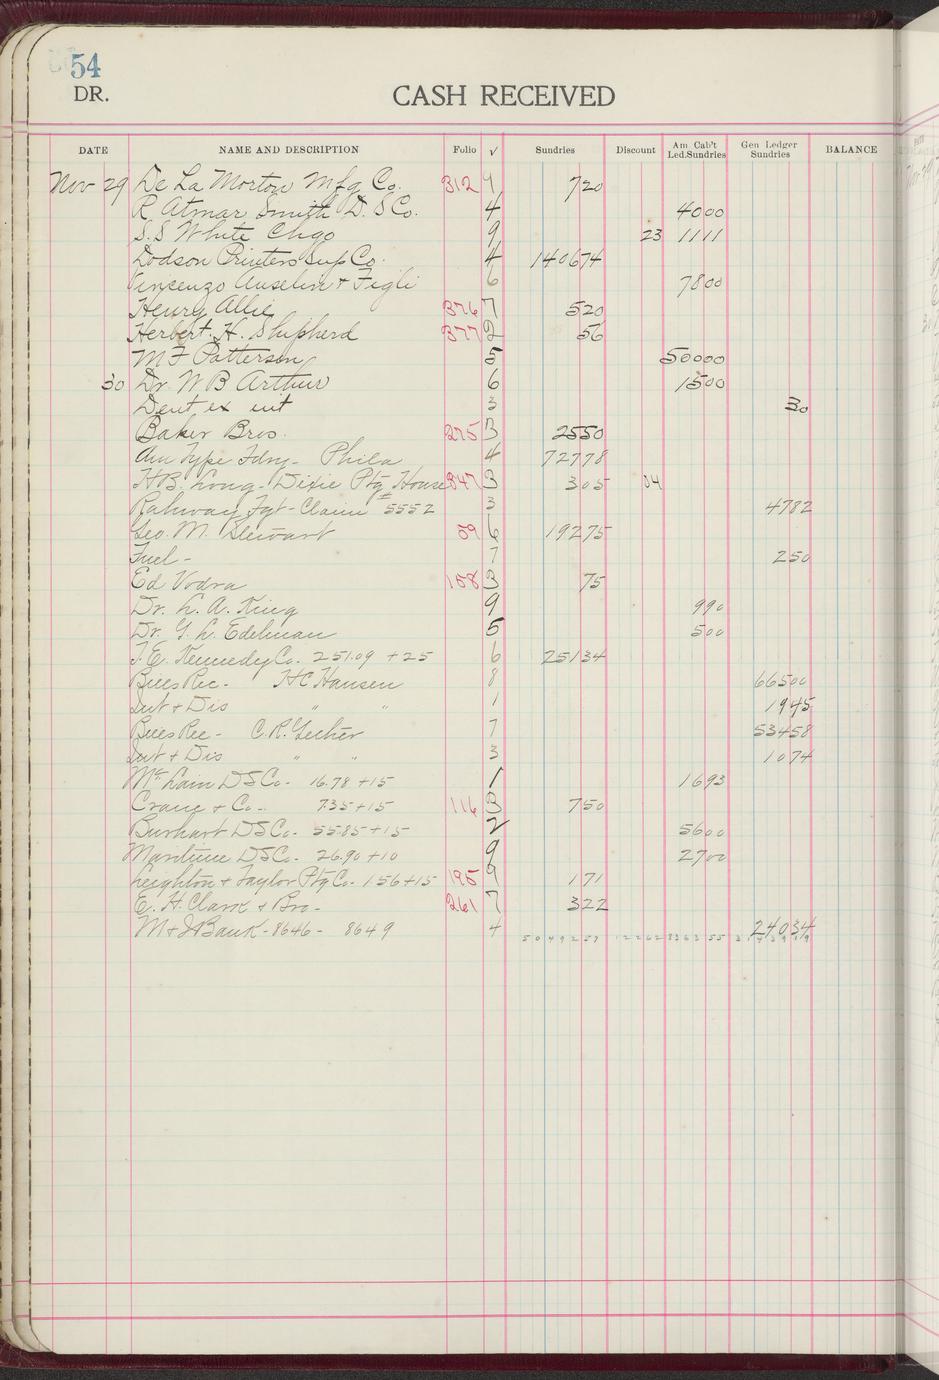 54
DR.
CASH RECEIVED
DATE NAME AND DESCRIPTION Folio √ Sundries Discount Am Cab't Led.Sundries Gen Ledger Sundries BALANCE
Nov 29 De La Morton Mfg Co. 312 9 720
R Atmar Smith D. S Co. 4 4000
S.S White Chgo 9 23 1111
Dodson Printers Sup Co. 4 140674
Vincenzo Anselin + Figli 6 7800
Henry Allie 376 7 520
Herbert. H. Shipherd 377 2 56
M F Patterson 5 50000
30 Dr. W B Arthur 6 1500
Dent ex int 3 30
Baker Bros. 275 3 2550
Am Type Fdry - Phila 4 72778
H B. Long - Dixie Ptg House 347 3 305 04
Rahway Fgt - Claim # 5552 3 4782
Geo. M. Stewart 59 6 19275
Fuel - 7 250
Ed Vodra 158 3 75
Dr. L. A. King 9 990
Dr. G. L. Edelman 5 500
T. E. Kennedy Co. 251.09 + 25 6 25134
Bills Rec - H C Hansen 8 66500
Int + Dis " " 1 1945
Bills Rec - C. R. Gether 7 53458
Int + Dis " " 3 1074
Mc Lain D S Co - 16.78 + 15 1 1693
Crane + Co - 7.35 + 15 116 3 750
Burhart D S Co - 55.85 + 15 2 5600
Maritime D S Co. 26.90 + 10 9 2700
Leighton + Taylor Ptg Co - 156 + 15 195 9 171
E. H. Clark + Bro - 261 7 322
M + J Bank - 8646 - 8649 4 24034